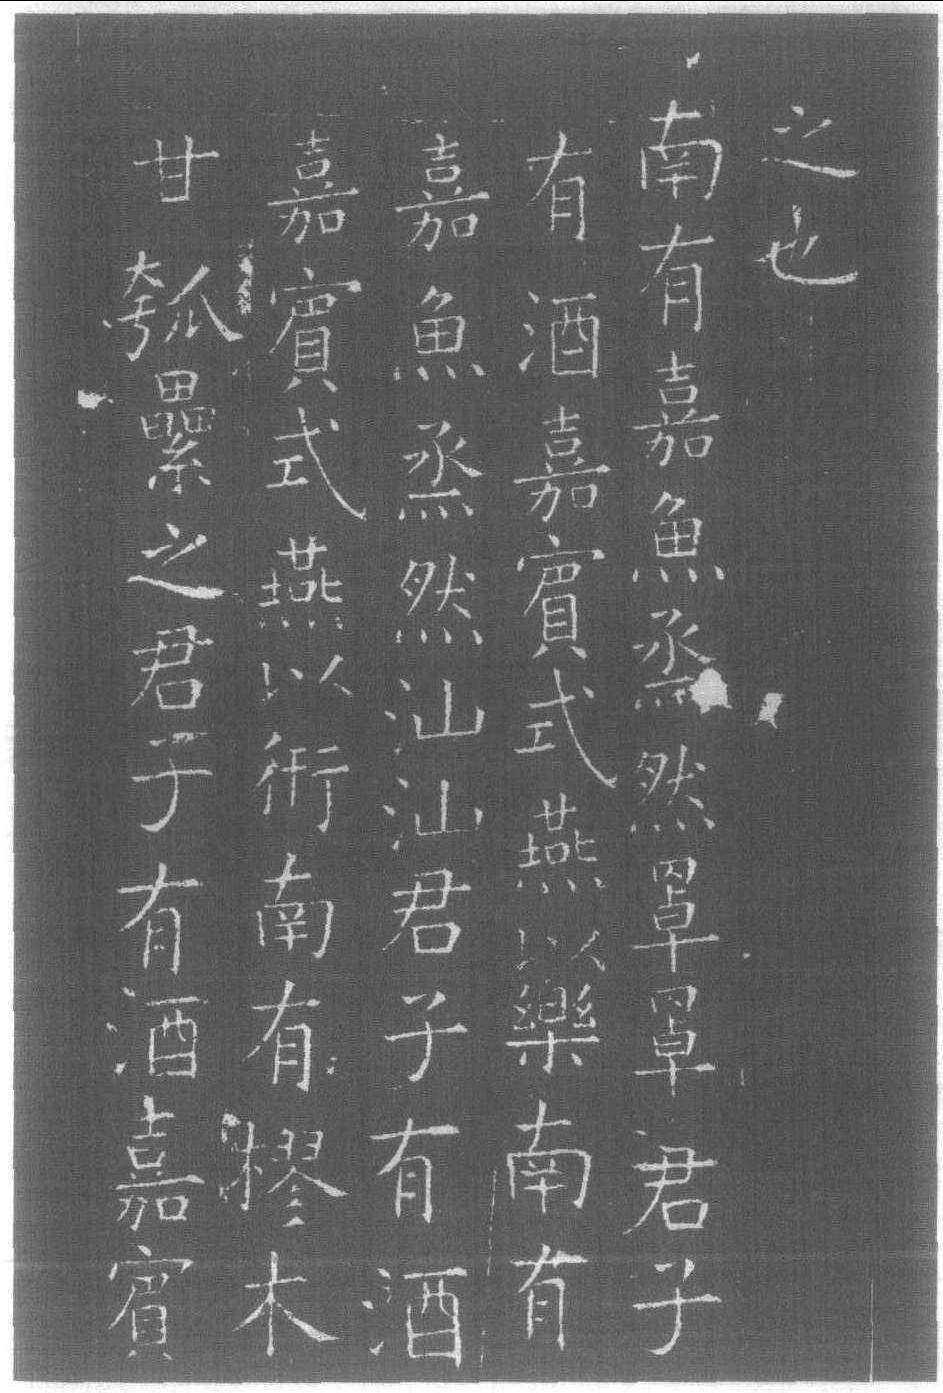 之也
南有嘉魚烝然罩罩君子
有酒嘉賓式燕以樂南有
嘉魚烝然汕汕君子有酒
嘉賓式燕以衎南有樛木
甘瓠纍之君子有酒嘉賓